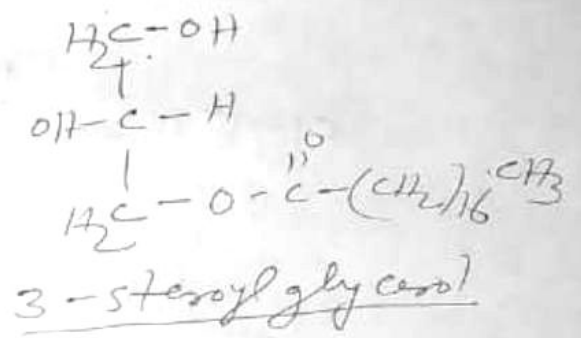 H₂C-OH
OH-C-H
O
H₂C-O-C-(CH₂)16 CH₃
3-steroyl glycerol